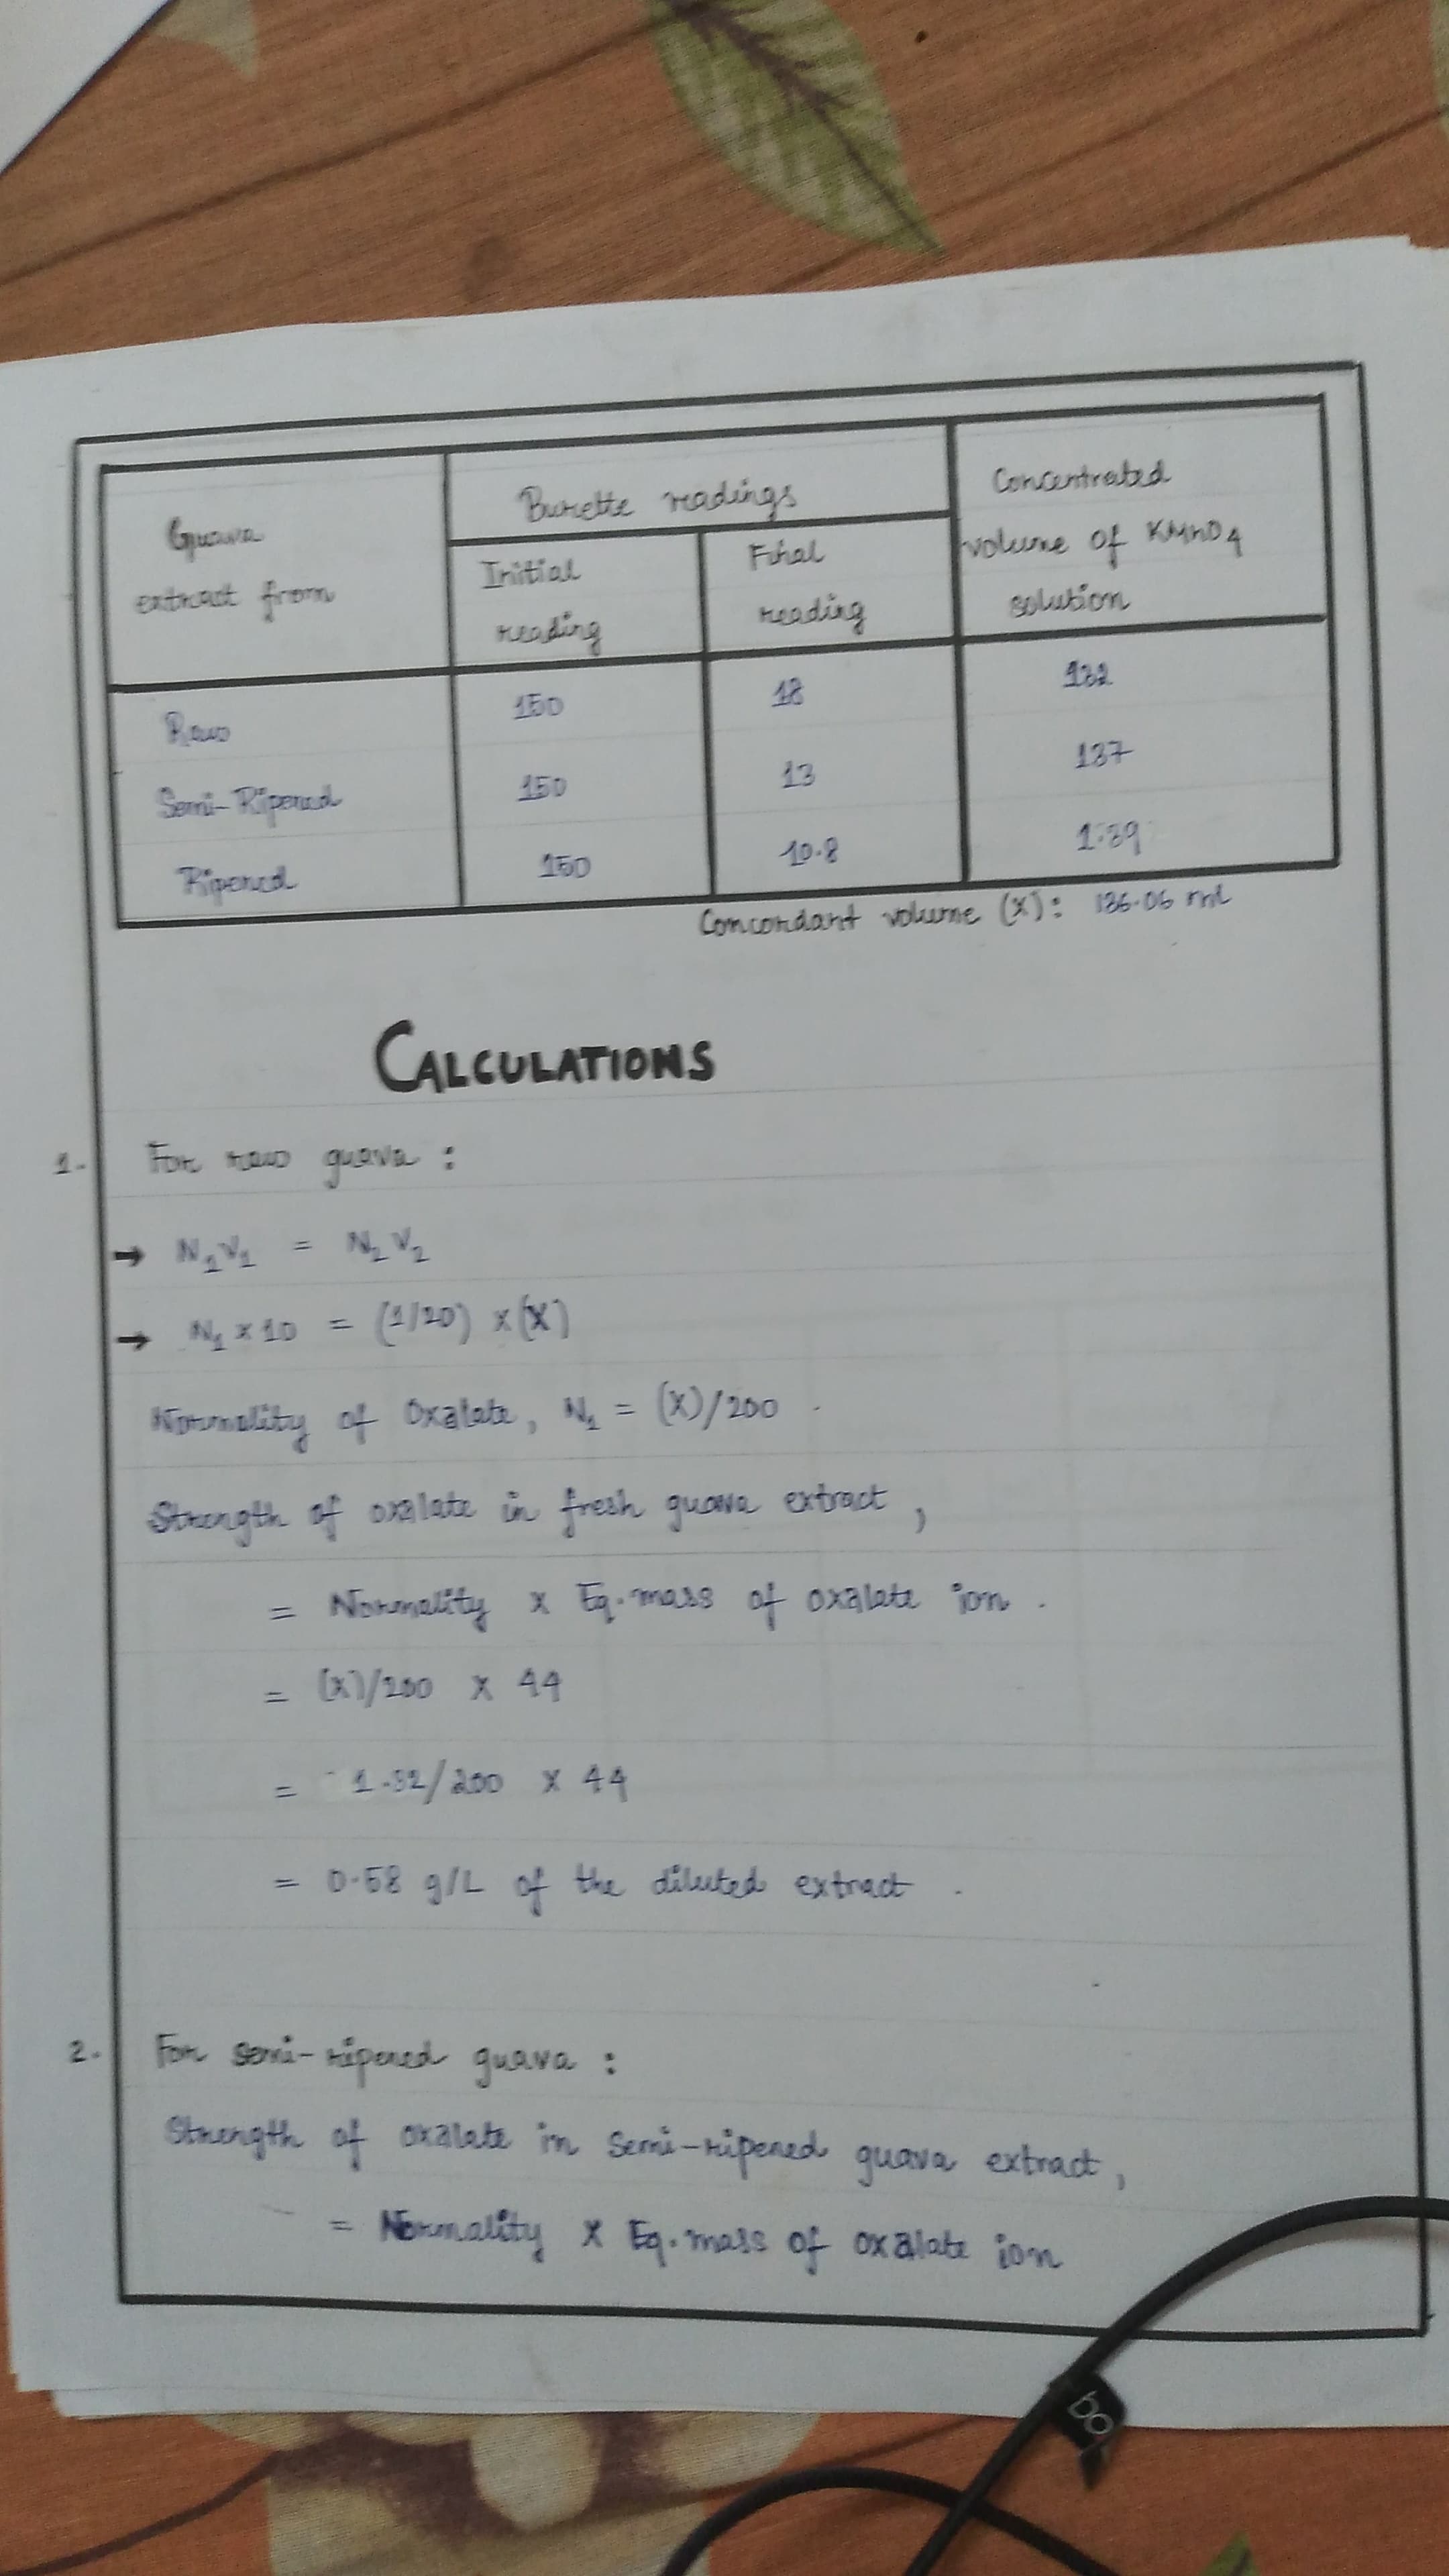 Guava extract from
Burette readings
Initial reading
Final reading
Concentrated volume of KMnO4 solution
Raw 150 18 132
Semi-Ripened 150 13 137
Ripened 150 10.8 1.39
Concordant volume (X): 136.06 ml
CALCULATIONS
1. For raw guava :
→ N1V1 = N2V2
→ N1 x 10 = (1/20) x (X)
Normality of Oxalate, N1 = (X)/200 .
Strength of oxalate in fresh guava extract ,
= Normality x Eq.mass of oxalate ion .
= (X)/200 x 44
= 1.32/200 x 44
= 0.58 g/L of the diluted extract .
2. For semi-ripened guava :
Strength of oxalate in semi-ripened guava extract ,
= Normality x Eq.mass of oxalate ion